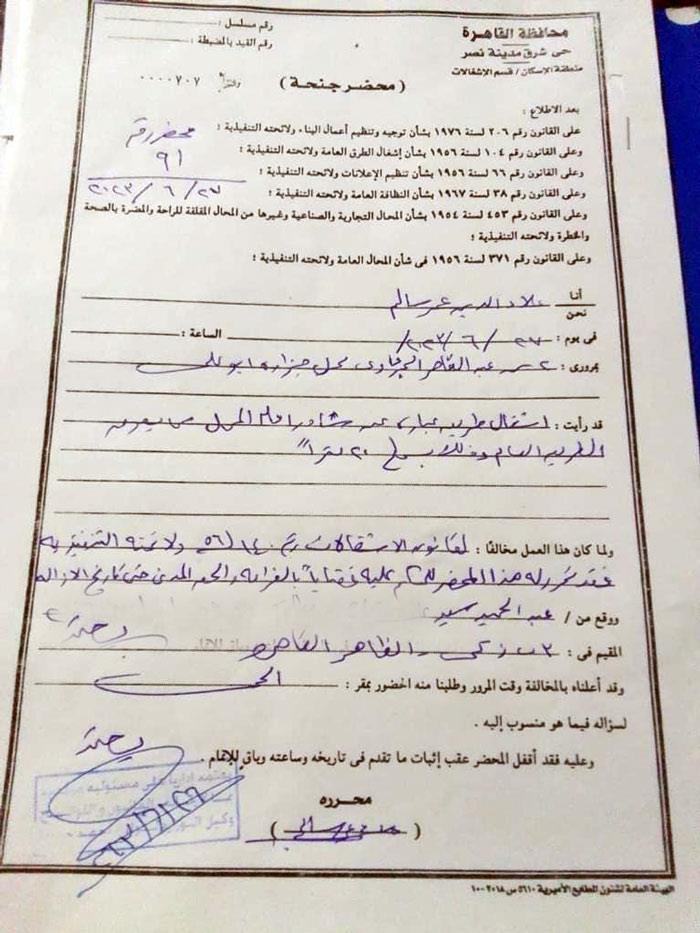 محافظة القاهرة
حى شرق مدينة نصر
منطقة الإسكان / قسم الإشغالات
رقم مسلسل :
رقم القيد بالمضبطة :
( محضر جنحة )
٠٠٠٠٧٠٧
بعد الاطلاع :
على القانون رقم ٢٠٦ لسنة ١٩٧٦ بشأن توجيه وتنظيم أعمال البناء ولائحته التنفيذية ؛
وعلى القانون رقم ١٠٤ لسنة ١٩٥٦ بشأن إشغال الطرق العامة ولائحته التنفيذية ؛
وعلى القانون رقم ٦٦ لسنة ١٩٥٦ بشأن تنظيم الإعلانات ولائحته التنفيذية ؛
وعلى القانون رقم ٣٨ لسنة ١٩٦٧ بشأن النظافة العامة ولائحته التنفيذية ؛
وعلى القانون رقم ٤٥٣ لسنة ١٩٥٤ بشأن المحال التجارية والصناعية وغيرها من المحال المقلقة للراحة والمضرة بالصحة
والخطرة ولائحته التنفيذية ؛
وعلى القانون رقم ٣٧١ لسنة ١٩٥٦ فى شأن المحال العامة ولائحته التنفيذية ؛
محضر رقم
٩١
٢٠٢٣/٦/٢٧
أنا علاء الدين عمر سالم
نحن
فى يوم : ٢٧ / ٦ / ٢٠٢٣ الساعة :
بمرورى : عبد القادر محل جزارة ابو
قد رأيت : اشغال طريق عبارة عن امام المحل
الطريق العام وذلك ٢٠ متراً
ولما كان هذا العمل مخالفًا : لقانون الاشغالات رقم ١٤٠ / ٥٦ ولائحته التنفيذية
فقد تحرر له هذا المحضر عليه بالغرامة حتى تاريخ الازالة
ووقع من / عبد الحميد سيد
المقيم فى : ٣ الظاهر القاهرة
وقد أعلناه بالمخالفة وقت المرور وطلبنا منه الحضور بمقر : الحى
لسؤاله فيما هو منسوب إليه .
وعليه فقد أقفل المحضر عقب إثبات ما تقدم فى تاريخه وساعته وباق للإتمام .
محرره
( )
الهيئة العامة لشئون المطابع الأميرية ٥٦١٠ س ٢٠١٨ - ١٠٠